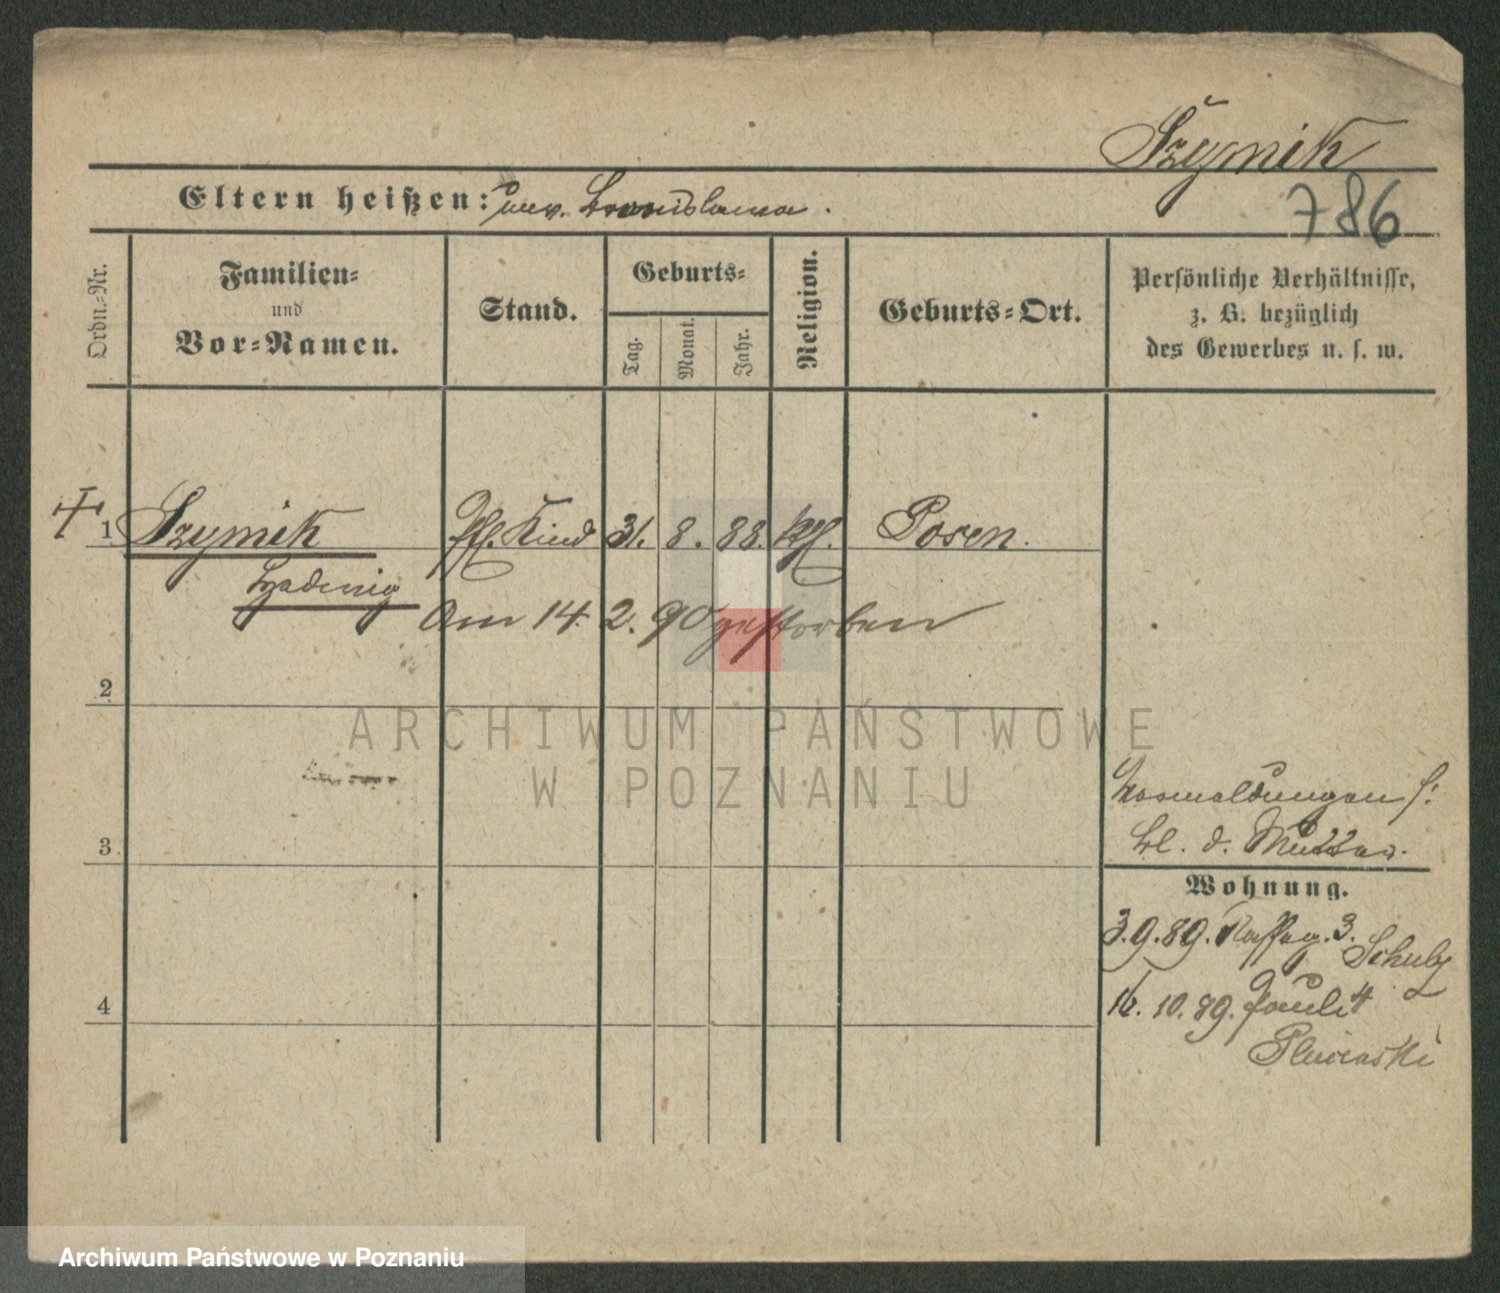 Szymik
786
Eltern heißen: unv. Bronislawa.
Ordn.-Nr.
Familien-
und
Vor-Namen.
Stand.
Geburts-
Tag.
Monat.
Jahr.
Religion.
Geburts-Ort.
Persönliche Verhältnisse,
z. B. bezüglich
des Gewerbes u. s. w.
1 Szymik Kind 31. 8. 88. kth. Posen.
Hedwig
Am 14. 2. 90 gestorben
2
ARCHIWUM PAŃSTWOWE
W POZNANIU
Vormeldungen s:
bl. d. Mutter.
3
Wohnung.
3.9.89. 3.
Schulz
16. 10. 89. Pauli 4
4
Archiwum Państwowe w Poznaniu